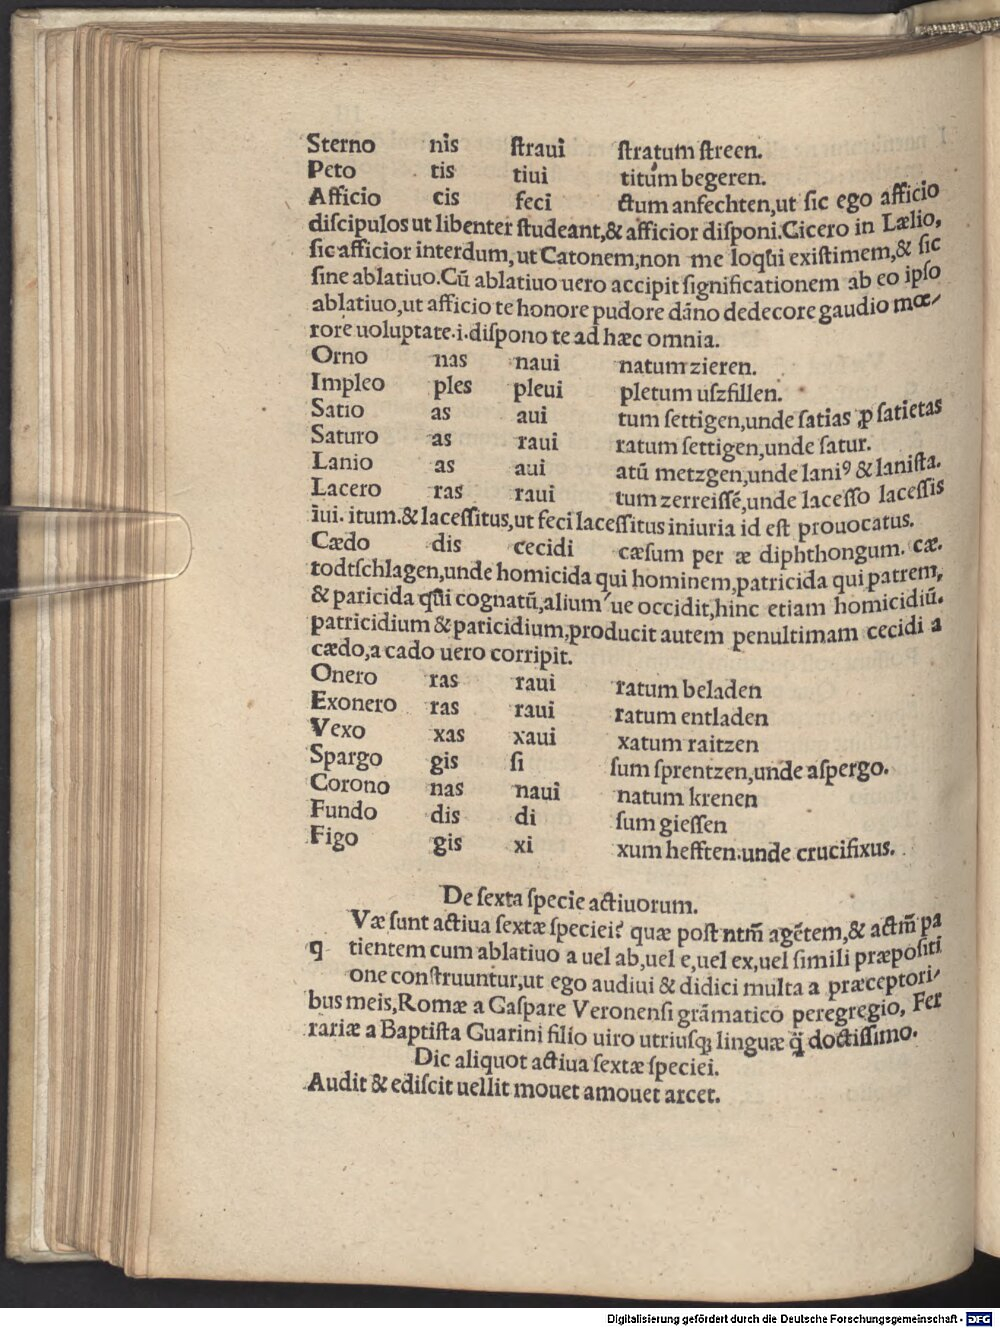 Sterno nis ſtraui ſtratum ſtreen.
Peto tis tiui titum begeren.
Afficio cis feci ctum anfechten,ut ſic ego afficio
diſcipulos ut libenter ſtudeant,& afficior diſponi.Cicero in Lælio,
ſic afficior interdum, ut Catonem,non me loqui exiſtimem,& ſic
ſine ablatiuo.Cū ablatiuo uero accipit ſignificationem ab eo ipſo
ablatiuo,ut afficio te honore pudore dāno dedecore gaudio mœ⸗
rore uoluptate.i.diſpono te ad hæc omnia.
Orno nas naui natum zieren.
Impleo ples pleui pletum uſzfillen.
Satio as aui tum ſettigen,unde ſatias ꝓ ſatietas
Saturo as raui ratum ſettigen,unde ſatur.
Lanio as aui atū metzgen,unde laniꝰ & laniſta.
Lacero ras raui tum zerreiſſē,unde laceſſo laceſſis
iui. itum.& laceſſitus,ut feci laceſſitus iniuria id eſt prouocatus.
Cædo dis cecidi cæſum per æ diphthongum. cæ.
todtſchlagen,unde homicida qui hominem,patricida qui patrem,
& paricida qui cognatū,alium ue occidit,hinc etiam homicidiū.
patricidium & paricidium,producit autem penultimam cecidi a
cædo,a cado uero corripit.
Onero ras raui ratum beladen
Exonero ras raui ratum entladen
Vexo xas xaui xatum raitzen
Spargo gis ſi ſum ſprentzen,unde aſpergo.
Corono nas naui natum krenen
Fundo dis di ſum gieſſen
Figo gis xi xum hefften.unde crucifixus.
De ſexta ſpecie actiuorum.
Væ ſunt actiua ſextæ ſpeciei? quæ poſt ntm̄ agētem,& actm̄ pa
q tientem cum ablatiuo a uel ab,uel e,uel ex,uel ſimili præpoſiti
one conſtruuntur,ut ego audiui & didici multa a præceptori⸗
bus meis,Romæ a Gaſpare Veronenſi grāmatico peregregio, Fer
rariæ a Baptiſta Guarini filio uiro utriuſqꝫ linguæ q̄ doctiſſimo.
Dic aliquot actiua ſextæ ſpeciei.
Audit & ediſcit uellit mouet amouet arcet.
Digitalisierung gefördert durch die Deutsche Forschungsgemeinschaft - DFG